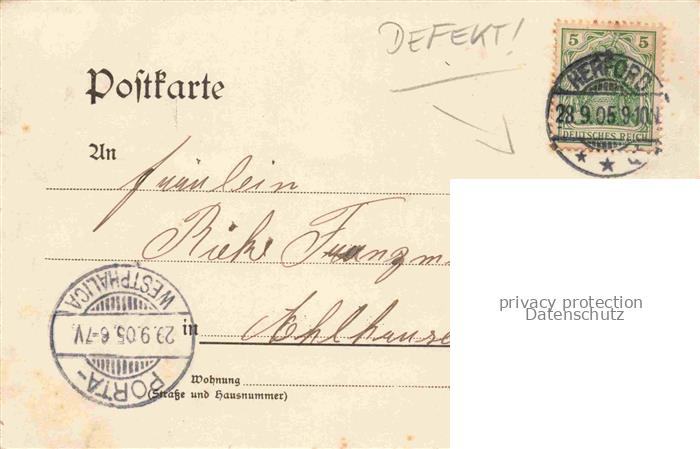 DEFEKT!
5 5
DEUTSCHES REICH
HERFORD
28.9.05.9-10V
Postkarte
An
Fräulein
Rieke
in
Wohnung
(Straße und Hausnummer)
PORTA-
29.9.05.6-7V.
WESTPHALICA
privacy protection
Datenschutz